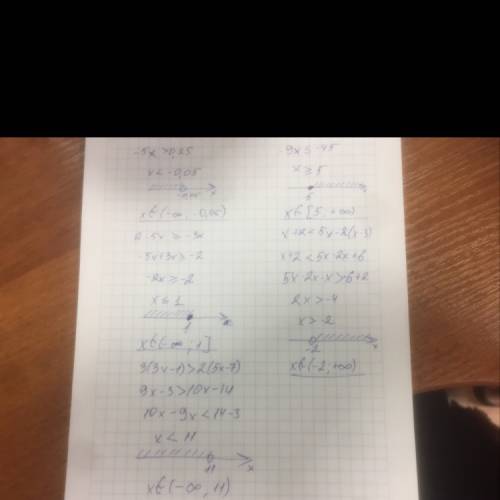 -5x > 0,25
x < -0,05
-0,05 x
x ∈ (-∞; 0,05)
2-5x ≥ -3x
-5x+3x ≥ -2
-2x ≥ -2
x ≤ 1
1 x
x ∈ (-∞; 1]
3(3x-1) > 2(5x-7)
9x-3 > 10x-14
10x-9x < 14-3
x < 11
11 x
x ∈ (-∞, 11)
-9x ≤ -45
x ≥ 5
5
x ∈ [5; +∞)
x+2 < 5x-2(x-3)
x+2 < 5x-2x+6
5x-2x-x > 6+2
2x > -4
x > -2
-2 x
x ∈ (-2; +∞)